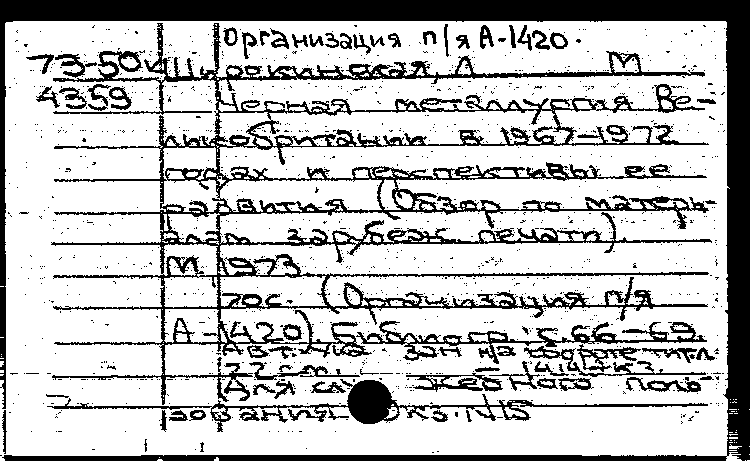 Организация п/я А-1420.
73-50к Широкинская, Л М
4359 Черная металлургия Ве-
ликобритании в 1967-1972
годах и перспективы ее
развития (Обзор по матери-
алам зарубеж. печати).
М. 1973.
70с. (Организация п/я
А-1420). Библиогр.: с.66-69.
Авт. указан на обороте титл.
22 см. 144 экз.
Для служебного поль-
зования. Экз. №15